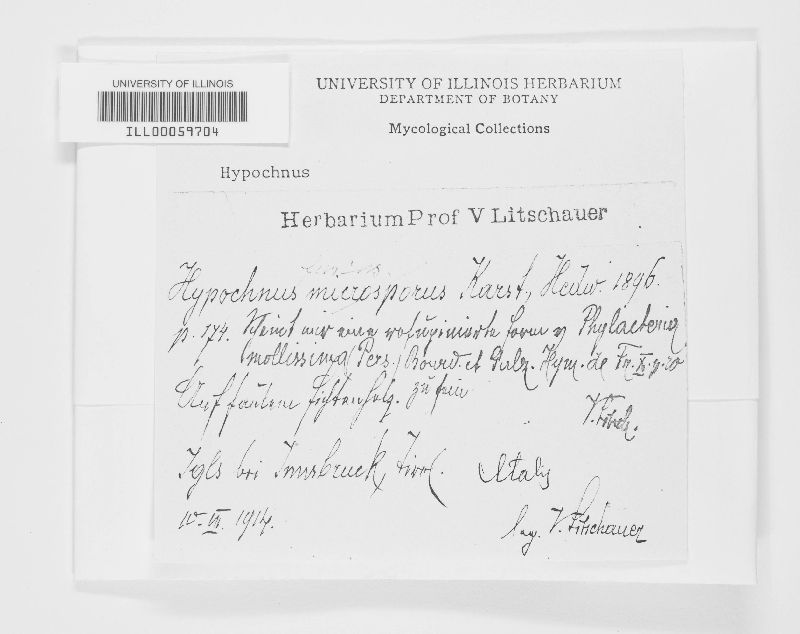 UNIVERSITY OF ILLINOIS
ILL00059704
UNIVERSITY OF ILLINOIS HERBARIUM
DEPARTMENT OF BOTANY
Mycological Collections
Hypochnus
Herbarium Prof V Litschauer
Hypochnus microsporus Karst, Hedw. 1896.
p. 174. Scheint mir eine resupinierte form v Phylacteria
mollissima (Pers.) Bourd. et Galz. Hym. de Fr. IX. p. 20
Auf faulem Fichtenholz. zu sein
V. Litsch.
Igls bei Innsbruck, Tirol. Italy
1914.
leg. V. Litschauer